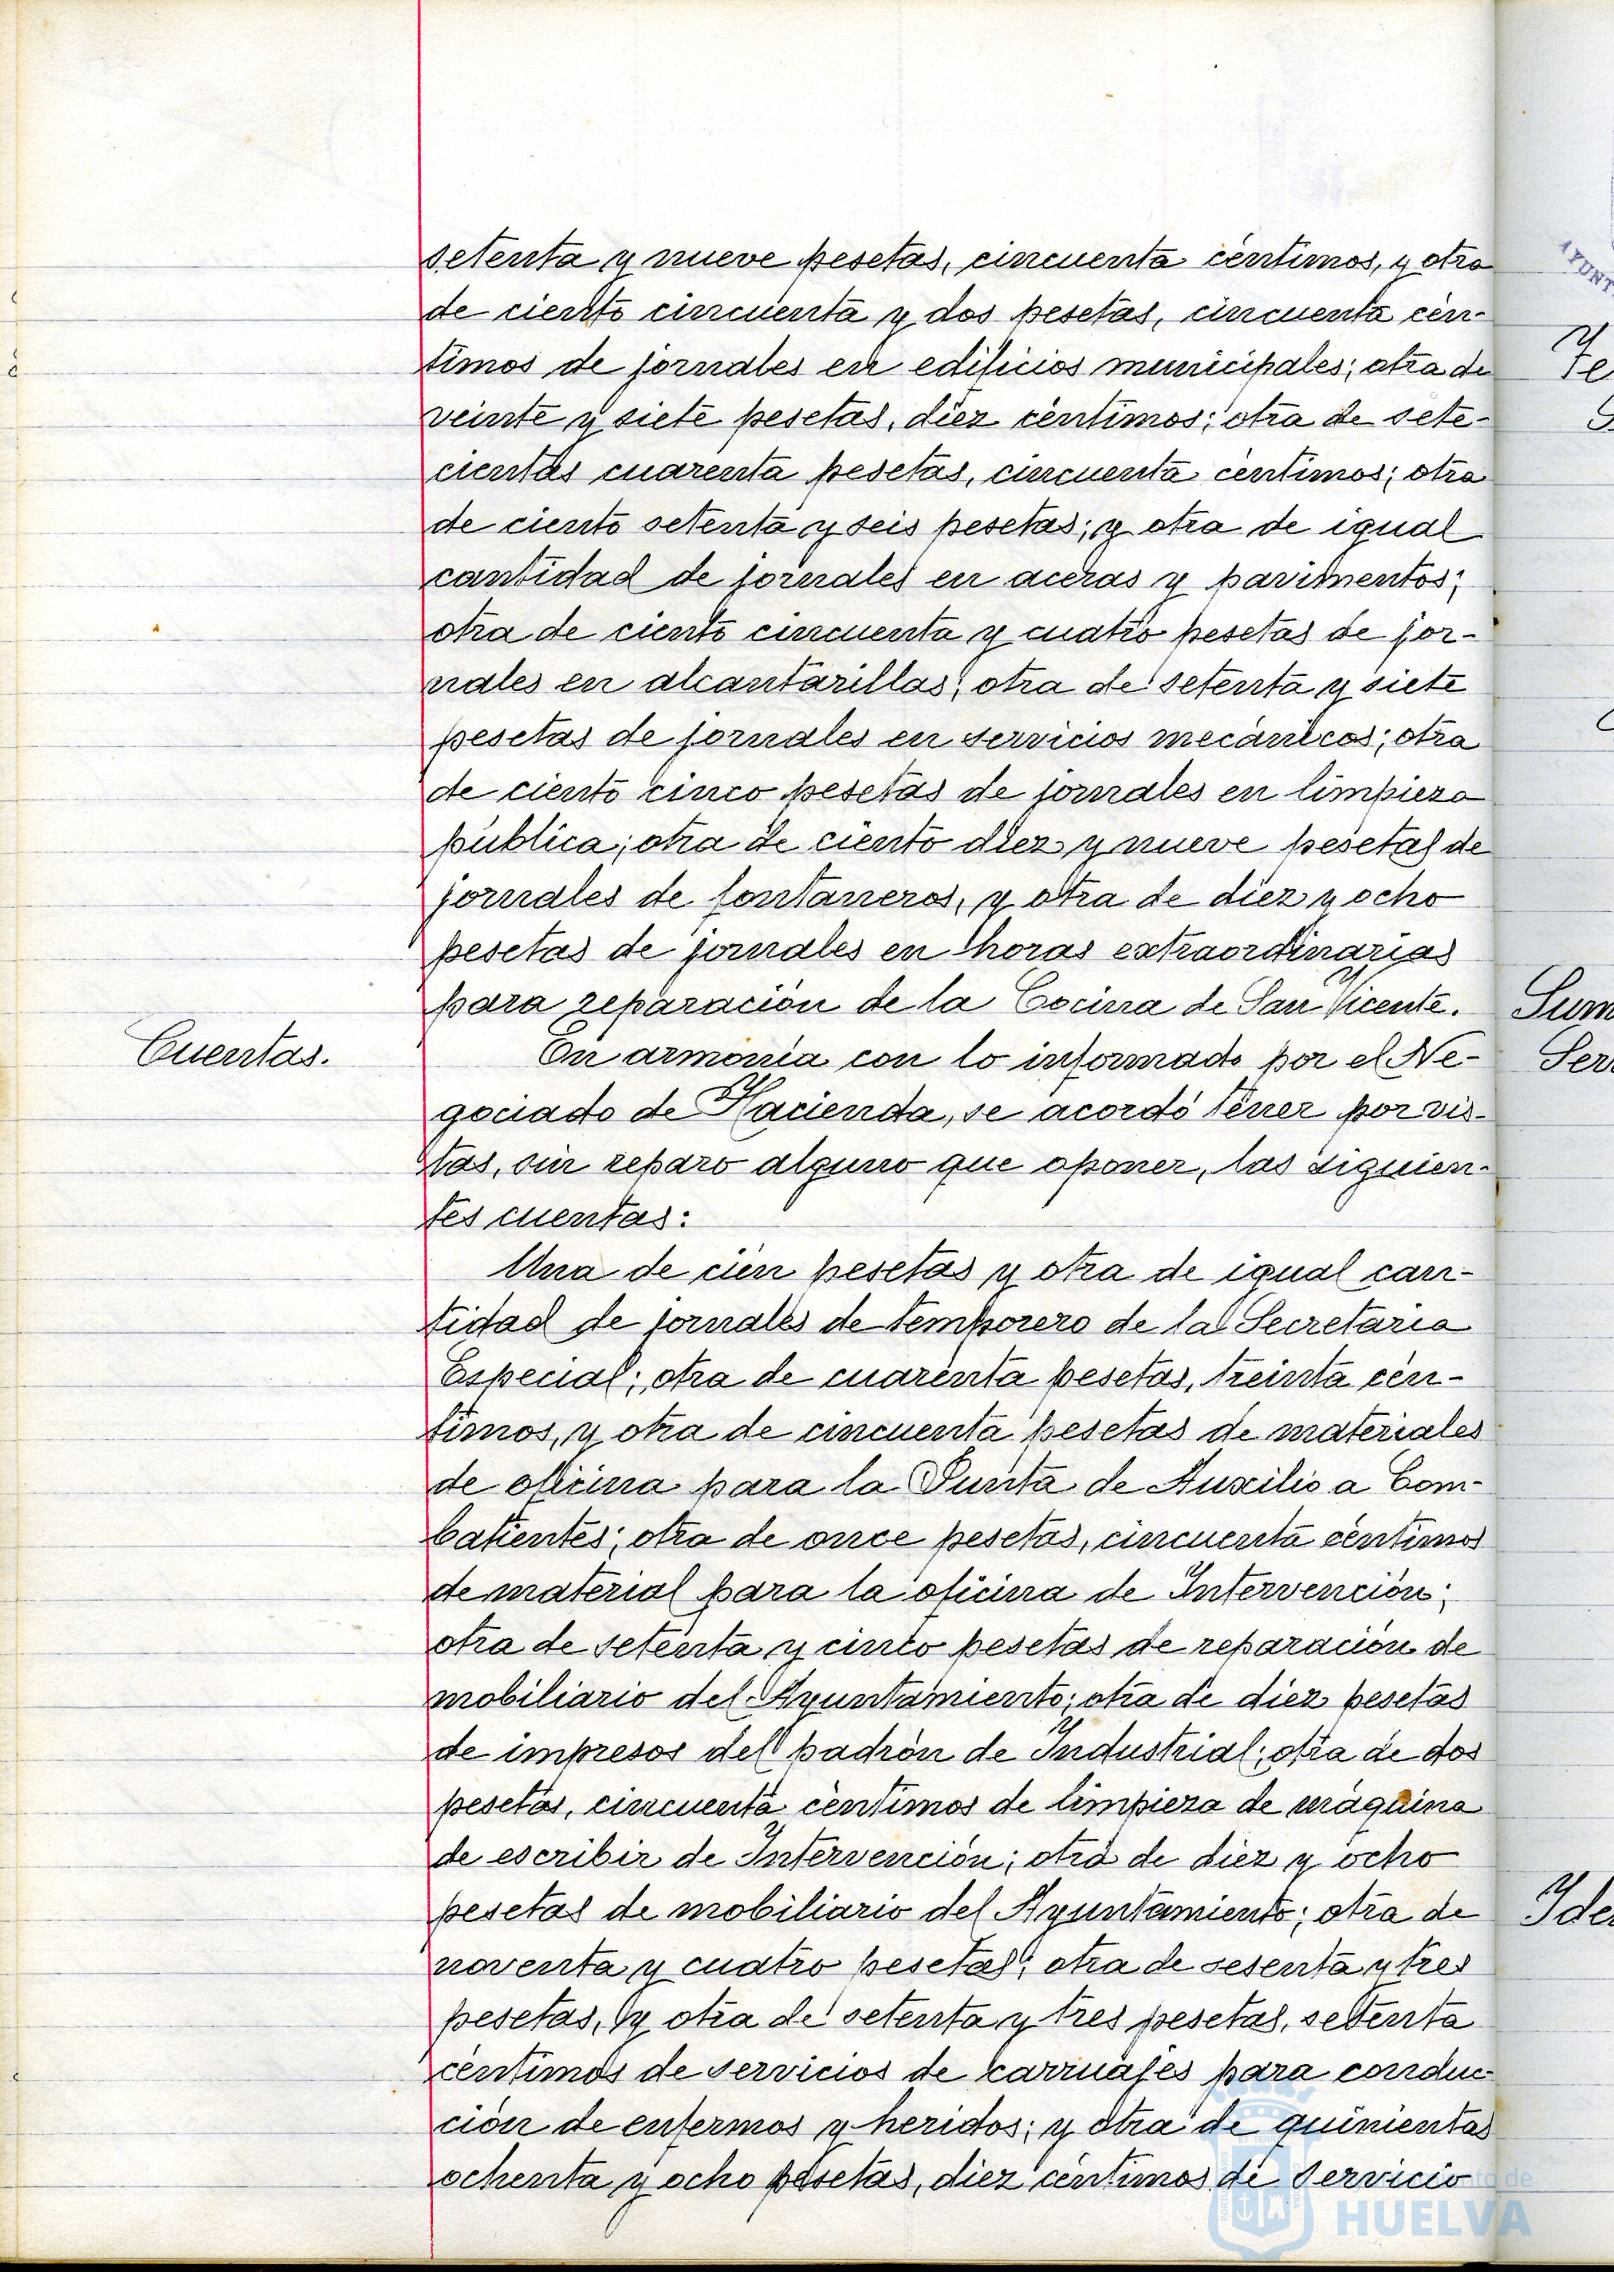 setenta y nueve pesetas, cincuenta céntimos, y otra
de ciento cincuenta y dos pesetas, cincuenta cén-
timos de jornales en edificios municipales; otra de
veinte y siete pesetas, diez céntimos; otra de sete-
cientas cuarenta pesetas, cincuenta centimos; otra
de ciento setenta y seis pesetas; y otra de igual
cantidad de jornales en aceras y pavimentos;
otra de ciento cincuenta y cuatro pesetas de jor-
nales en alcantarillas; otra de setenta y siete
pesetas de jornales en servicios mecánicos; otra
de ciento cinco pesetas de jornales en limpieza
pública; otra de ciento diez y nueve pesetas de
jornales de fontaneros, y otra de diez y ocho
pesetas de jornales en horas extraordinarias
para reparación de la Cocina de San Vicente.
Cuentas.
En armonía con lo informado por el Ne-
gociado de Hacienda, se acordó tener por vis-
tas, sin reparo alguno que oponer, las siguien-
tes cuentas:
Una de cien pesetas y otra de igual can-
tidad de jornales de temporero de la Secretaria
Especial; otra de cuarenta pesetas, treinta cén-
timos, y otra de cincuenta pesetas de materiales
de oficina para la Junta de Auxilio a Com-
batientes; otra de once pesetas, cincuenta céntimos
de material para la oficina de Intervención;
otra de setenta y cinco pesetas de reparación de
mobiliario del Ayuntamiento; otra de diez pesetas
de impresos del padrón de Industrial; otra de dos
pesetas, cincuenta céntimos de limpieza de máquina
de escribir de Intervención; otra de diez y ocho
pesetas de mobiliario del Ayuntamiento; otra de
noventa y cuatro pesetas; otra de sesenta y tres
pesetas, y otra de setenta y tres pesetas, setenta
céntimos de servicios de carruajes para conduc-
ción de enfermos y heridos; y otra de quinientas
ochenta y ocho pesetas, diez céntimos de servicio
HUELVA
Sum
Ser
Ide